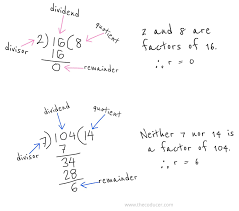 dividend
quotient
divisor
2)16(8
16
0
remainder
2 and 8 are
factors of 16.
∴ r = 0
dividend
quotient
divisor
7)104(14
7
34
28
6
remainder
Neither 7 nor 14 is
a factor of 104.
∴ r = 6